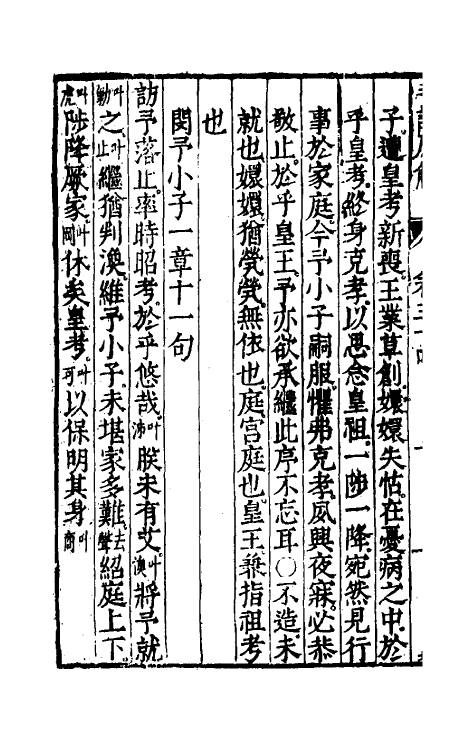 子遭皇考新喪王業草創嬛嬛失怙在憂病之中於
乎皇考終身克孝以思念皇祖一陟一降宛然見行
事於家庭今予小子嗣服懼弗克孝夙興夜寐必恭
敬止於乎皇王予亦欲承繼此序不忘耳○不造未
就也嬛嬛猶煢煢無依也庭宫庭也皇王兼指祖考
也
閔予小子一章十一句
訪予落止率時昭考於乎悠哉叶朕未有艾叶將予就
之叶止繼猶判渙維予小子未堪家多難去聲紹庭上下
陟降厥家叶休矣皇考叶可以保明其身叶